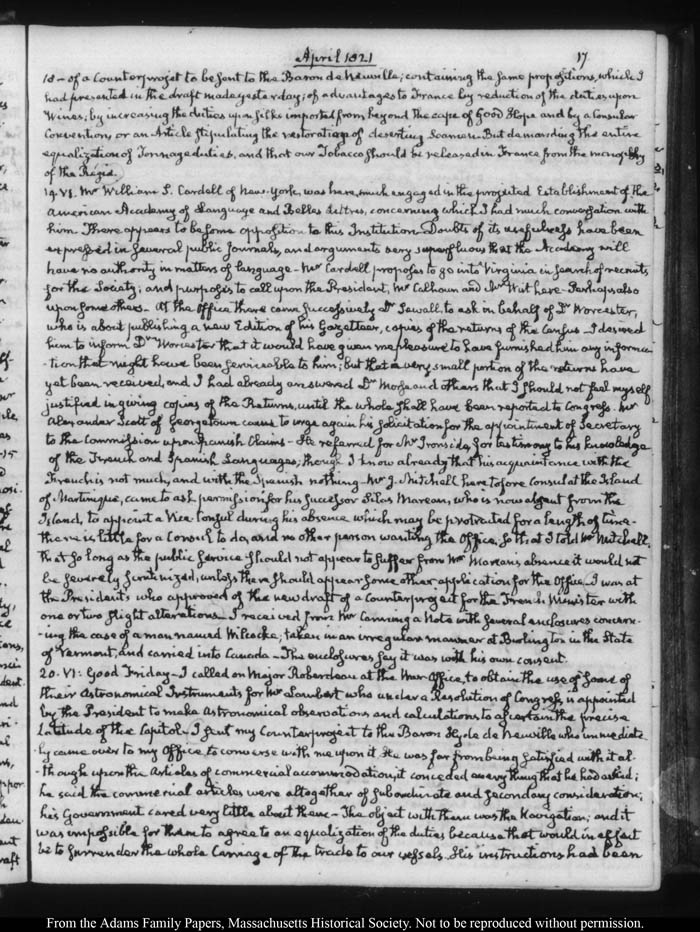 April 1821
17
18 – of a Counterprojet to be sent to the Baron de Neuville; containing the same propositions, which I
had presented in the draft made yesterday; of advantages to France by reduction of the duties upon
Wines, by increasing the duties upon silks imported from beyond the cape of Good Hope and by a Consular
Convention, or an Article stipulating the restoration of deserting Seamen. But demanding the entire
equalization of Tonnage duties, and that our Tobacco should be released in France from the monopoly
of the Régie.
19. VI. Mr William S. Cardell of New-York, was here, much engaged in the projected Establishment of the
American Academy of Language and Belles Lettres, concerning which I had much conversation with
him. There appears to be some opposition to this Institution. Doubts of its usefulness have been
expressed in several public Journals, and arguments very superfluous that the Academy will
have no authority in matters of language – Mr Cardell proposes to go into Virginia in search of recruits
for the Society; and purposes to call upon the President, Mr Calhoun and Mr Wirt here – Perhaps also
upon some others – At the Office there came successively Dr Sewall, to ask in behalf of Dr Worcester,
who is about publishing a new Edition of his Gazetteer, copies of the returns of the Census – I desired
him to inform Dr Worcester that it would have given me pleasure to have furnished him any informa-
-tion that might have been serviceable to him; but that a very small portion of the returns have
yet been received, and I had already answered Dr Morse and others that I should not feel myself
justified in giving copies of the Returns, until the whole shall have been reported to Congress. Mr
Alexander Scott of Georgetown came to urge again his solicitation for the appointment of Secretary
to the Commission upon Spanish Claims – He referred for Mr Ironside, for testimony to his knowledge
of the French and Spanish Languages; though I know already that his acquaintance with the
French is not much, and with the Spanish nothing – Mr J. Mitchell heretofore Consul at the Island
of Martinique, came to ask permission for his successor Silas Marean, who is now absent from the
Island, to appoint a Vice-Consul during his absence which may be protracted for a length of time –
there is little for a Consul to do, and no other person wanting the Office. So that I told Mr Mitchell,
that so long as the public service should not appear to suffer from Mr Marean's absence it would not
be severely scrutinized, unless there should appear some other application for the Office. I was at
the President's who approved of the new draft of a Counterprojet for the French Minister with
one or two slight alterations – I received from Mr Canning a Note with several enclosures concern-
-ing the case of a man named Wilcocke, taken in an irregular manner at Burlington in the State
of Vermont, and carried into Canada – The enclosures say it was with his own consent.
20. VI: Good Friday – I called on Major Roberdeau at the War Office, to obtain the use of some of
their Astronomical Instruments for Mr Lambert who under a Resolution of Congress is appointed
by the President to make astronomical observations and calculations to ascertain the precise
Latitude of the Capitol – I sent my Counterprojet to the Baron Hyde de Neuville who immediate-
ly came over to my Office to converse with me upon it. He was far from being satisfied with it al-
-though upon the Articles of commercial accommodation, it conceded every thing that he had asked;
he said the commercial articles were altogether of subordinate and secondary consideration;
his Government cared very little about them – The object with them was the Navigation; and it
was impossible for them to agree to an equalization of the duties because that would in effect
be to surrender the whole Carriage of the trade to our vessels. His instructions had been
From the Adams Family Papers, Massachusetts Historical Society. Not to be reproduced without permission.